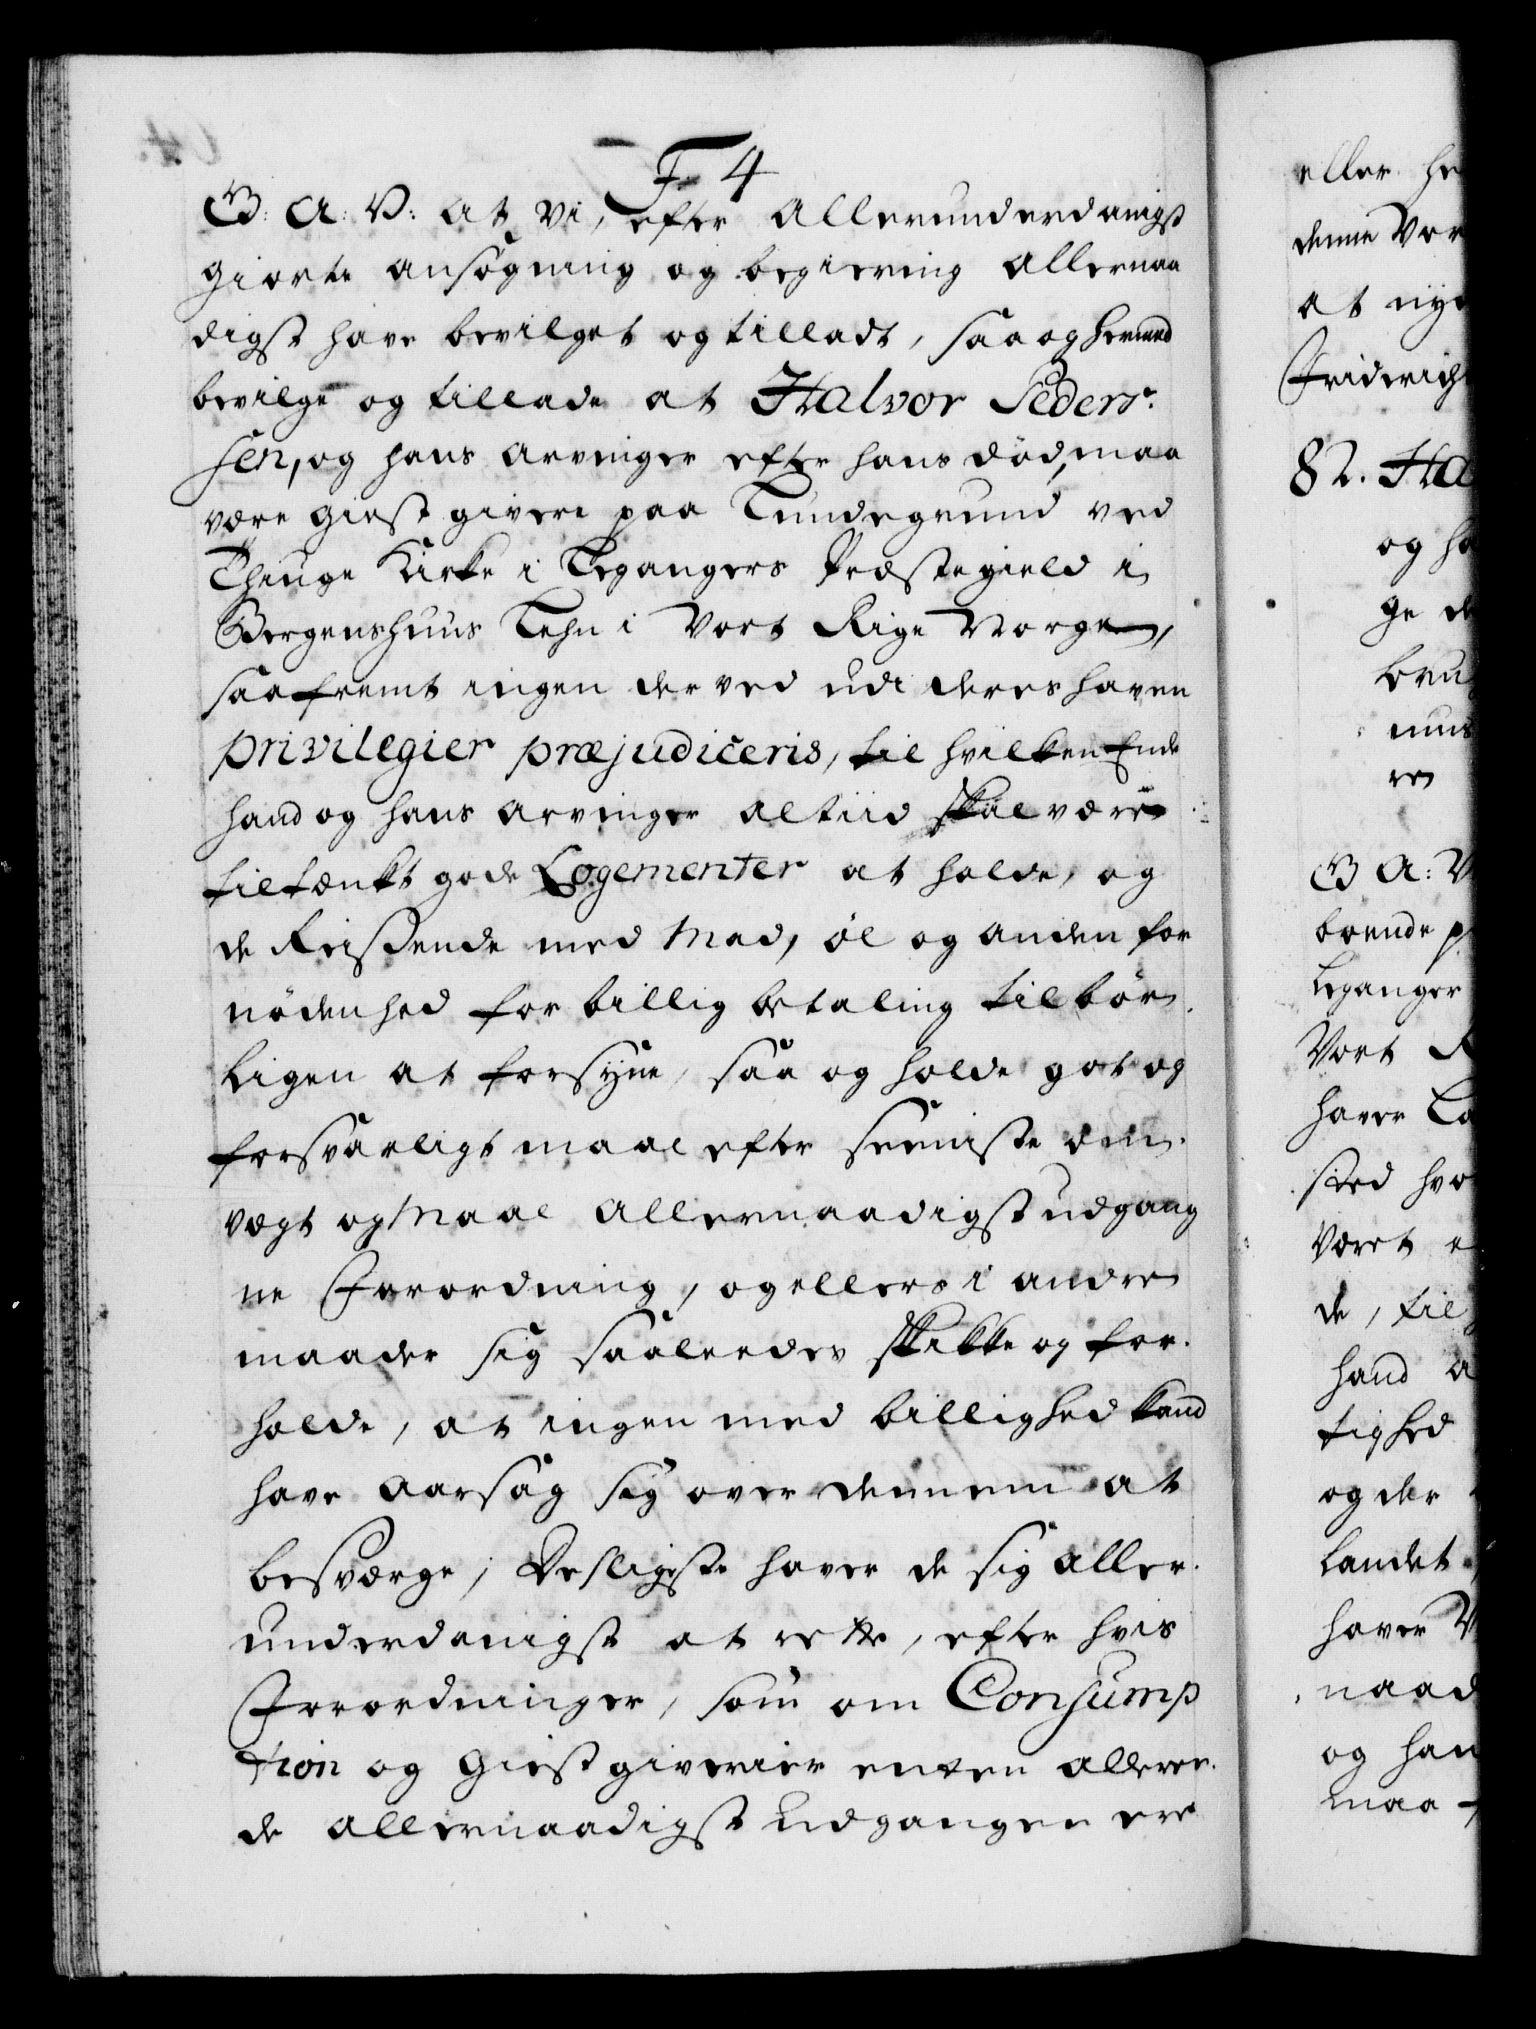 F 4
G: A: V: at vi, efter allerunderdanigst
giorte ansøgning og begiering allernaa
digst have bevilget og tilladt, saa og hermed
bevilge og tillade at Halvor Peders-
sen, og hans arvinger efter hans død, maa
være giestgivere paa Tundegrund ved
Thiuge Kirke i Leganger Præstegield i
Bergenshuus Lehn i Vort Rige Norge,
saafremt ingen derved udi deres haven
privilegier præjudiceris, til hvilken Ende
hand og hans arvinger altiid skal være
tiltænkt gode Logementer at holde, og
de Reisende med Mad, øl og anden for
nødenhed for billig betaling tilbør-
ligen at forsyne, saa og holde got og
forsvarligt maal efter seeniste om
vægt og Maal allernaadigst udgang
ne Forordning, og ellers i andre
maader sig saaleedes skikke og for-
holde, at ingen med billighed kand
have aarsag sig over dennem at
besværge; Desligeste haver de sig aller-
underdanigst at rette, efter hvis
Forordninger, som om Consump
tion og Giestgiverier enten allere-
de allernaadigst udgangen ere
eller he
denne Vor
at nye
Friderich
82. Ha
og ha
ge de
bru
nus
re
G A: V
boende p
Leganger
Vort R
haver La
sted hvo
Været e
de, til
hand a
tighed
og der
landet
haver V
naad
og han
maa